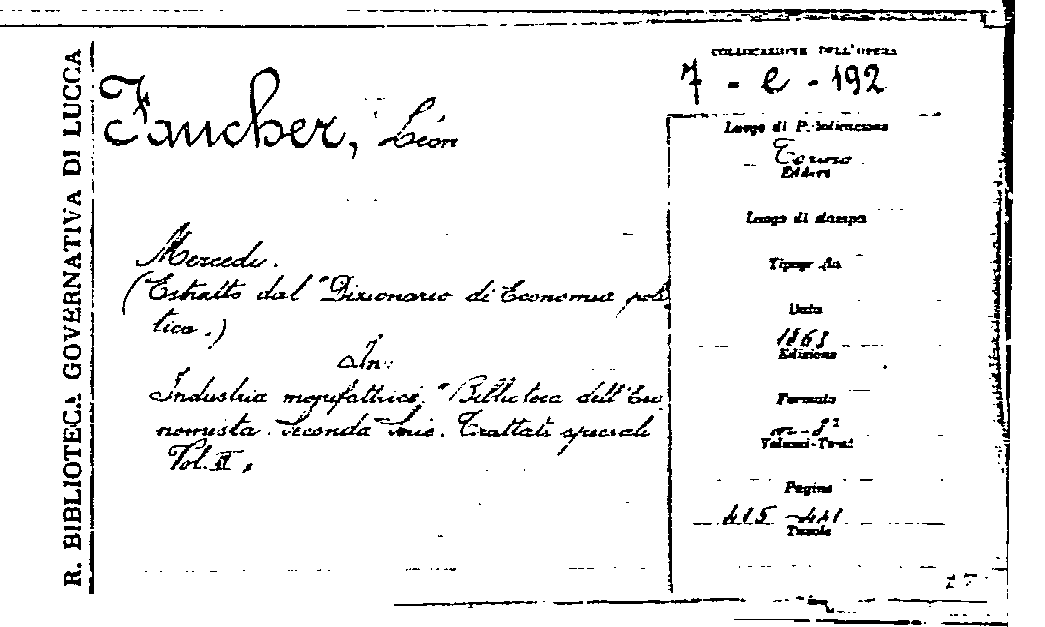 R. BIBLIOTECA GOVERNATIVA DI LUCCA
Faucher, Léon
Mercede.
(Estratto dal "Dizionario di Economia poli
tica.)
In:
Industria
"Biblioteca dell'Eco
nomista. Seconda Serie. Trattati speciali
Vol. II,
COLLOCAZIONE DELL'OPERA
7 - e - 192
Luogo di Pubblicazione
Torino
Editore
Luogo di stampa
Tipografia
Data
1863
Edizione
Formato
in-8°
Volumi-Tomi
Pagine
415-441
Tavole